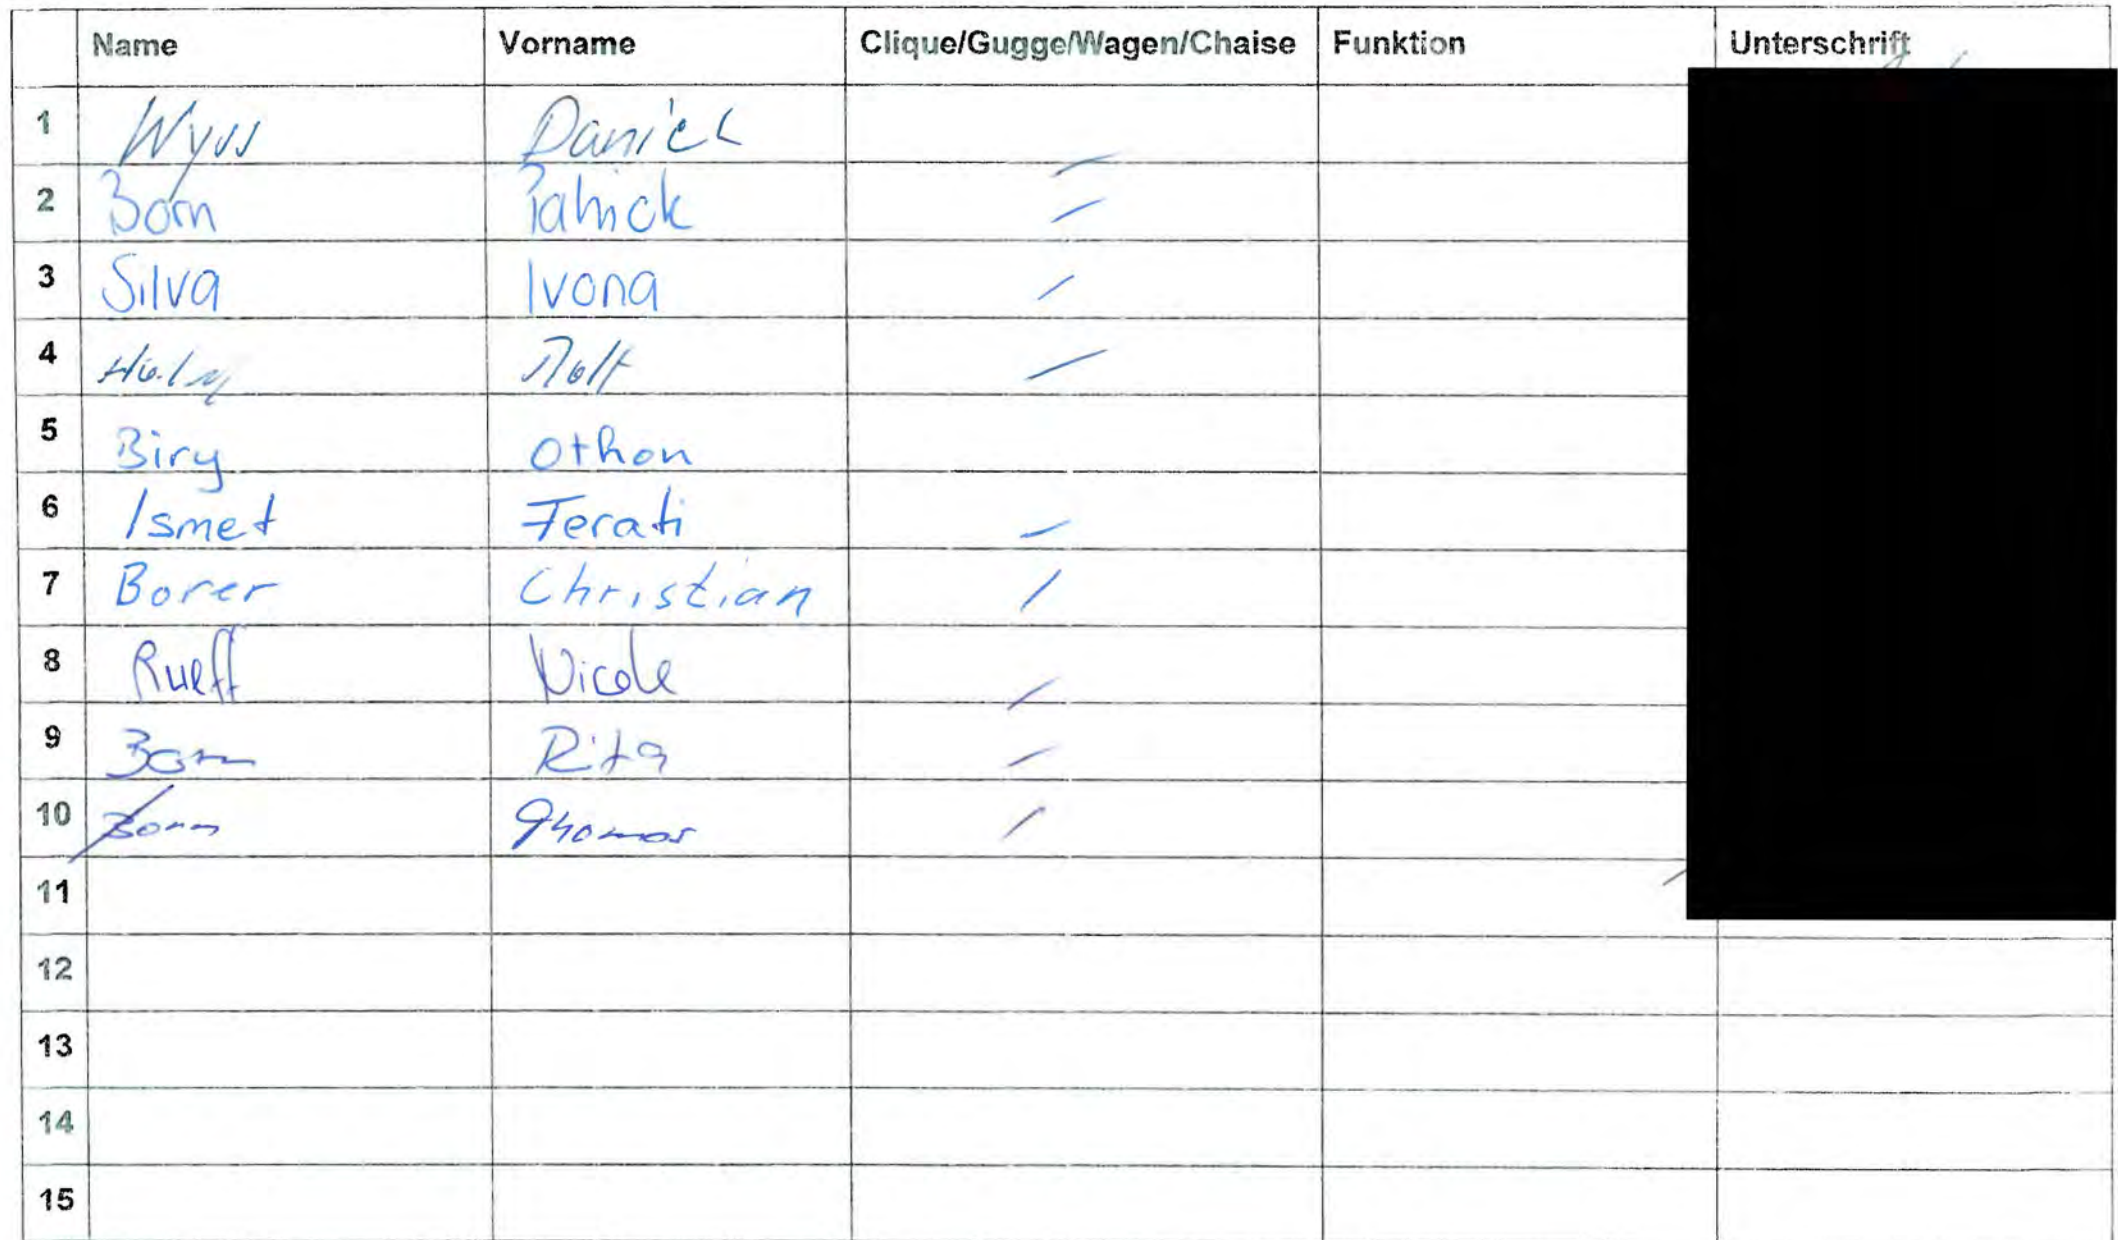 Name Vorname Clique/Gugge/Wagen/Chaise Funktion Unterschrift
1 Wyss Daniel
2 Born Patrick
3 Silva Ivona
4 Rolf
5 Biry Othon
6 Ismet Ferati
7 Borer Christian
8 Rueff Nicole
9 Born Rita
10 Born Thomas
11
12
13
14
15